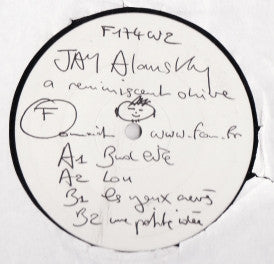 F174W2
JAY Alansky
a reminiscent drive
F www.fcom.fr
A1
A2 Lou
B1 les yeux
B2 une petite idée